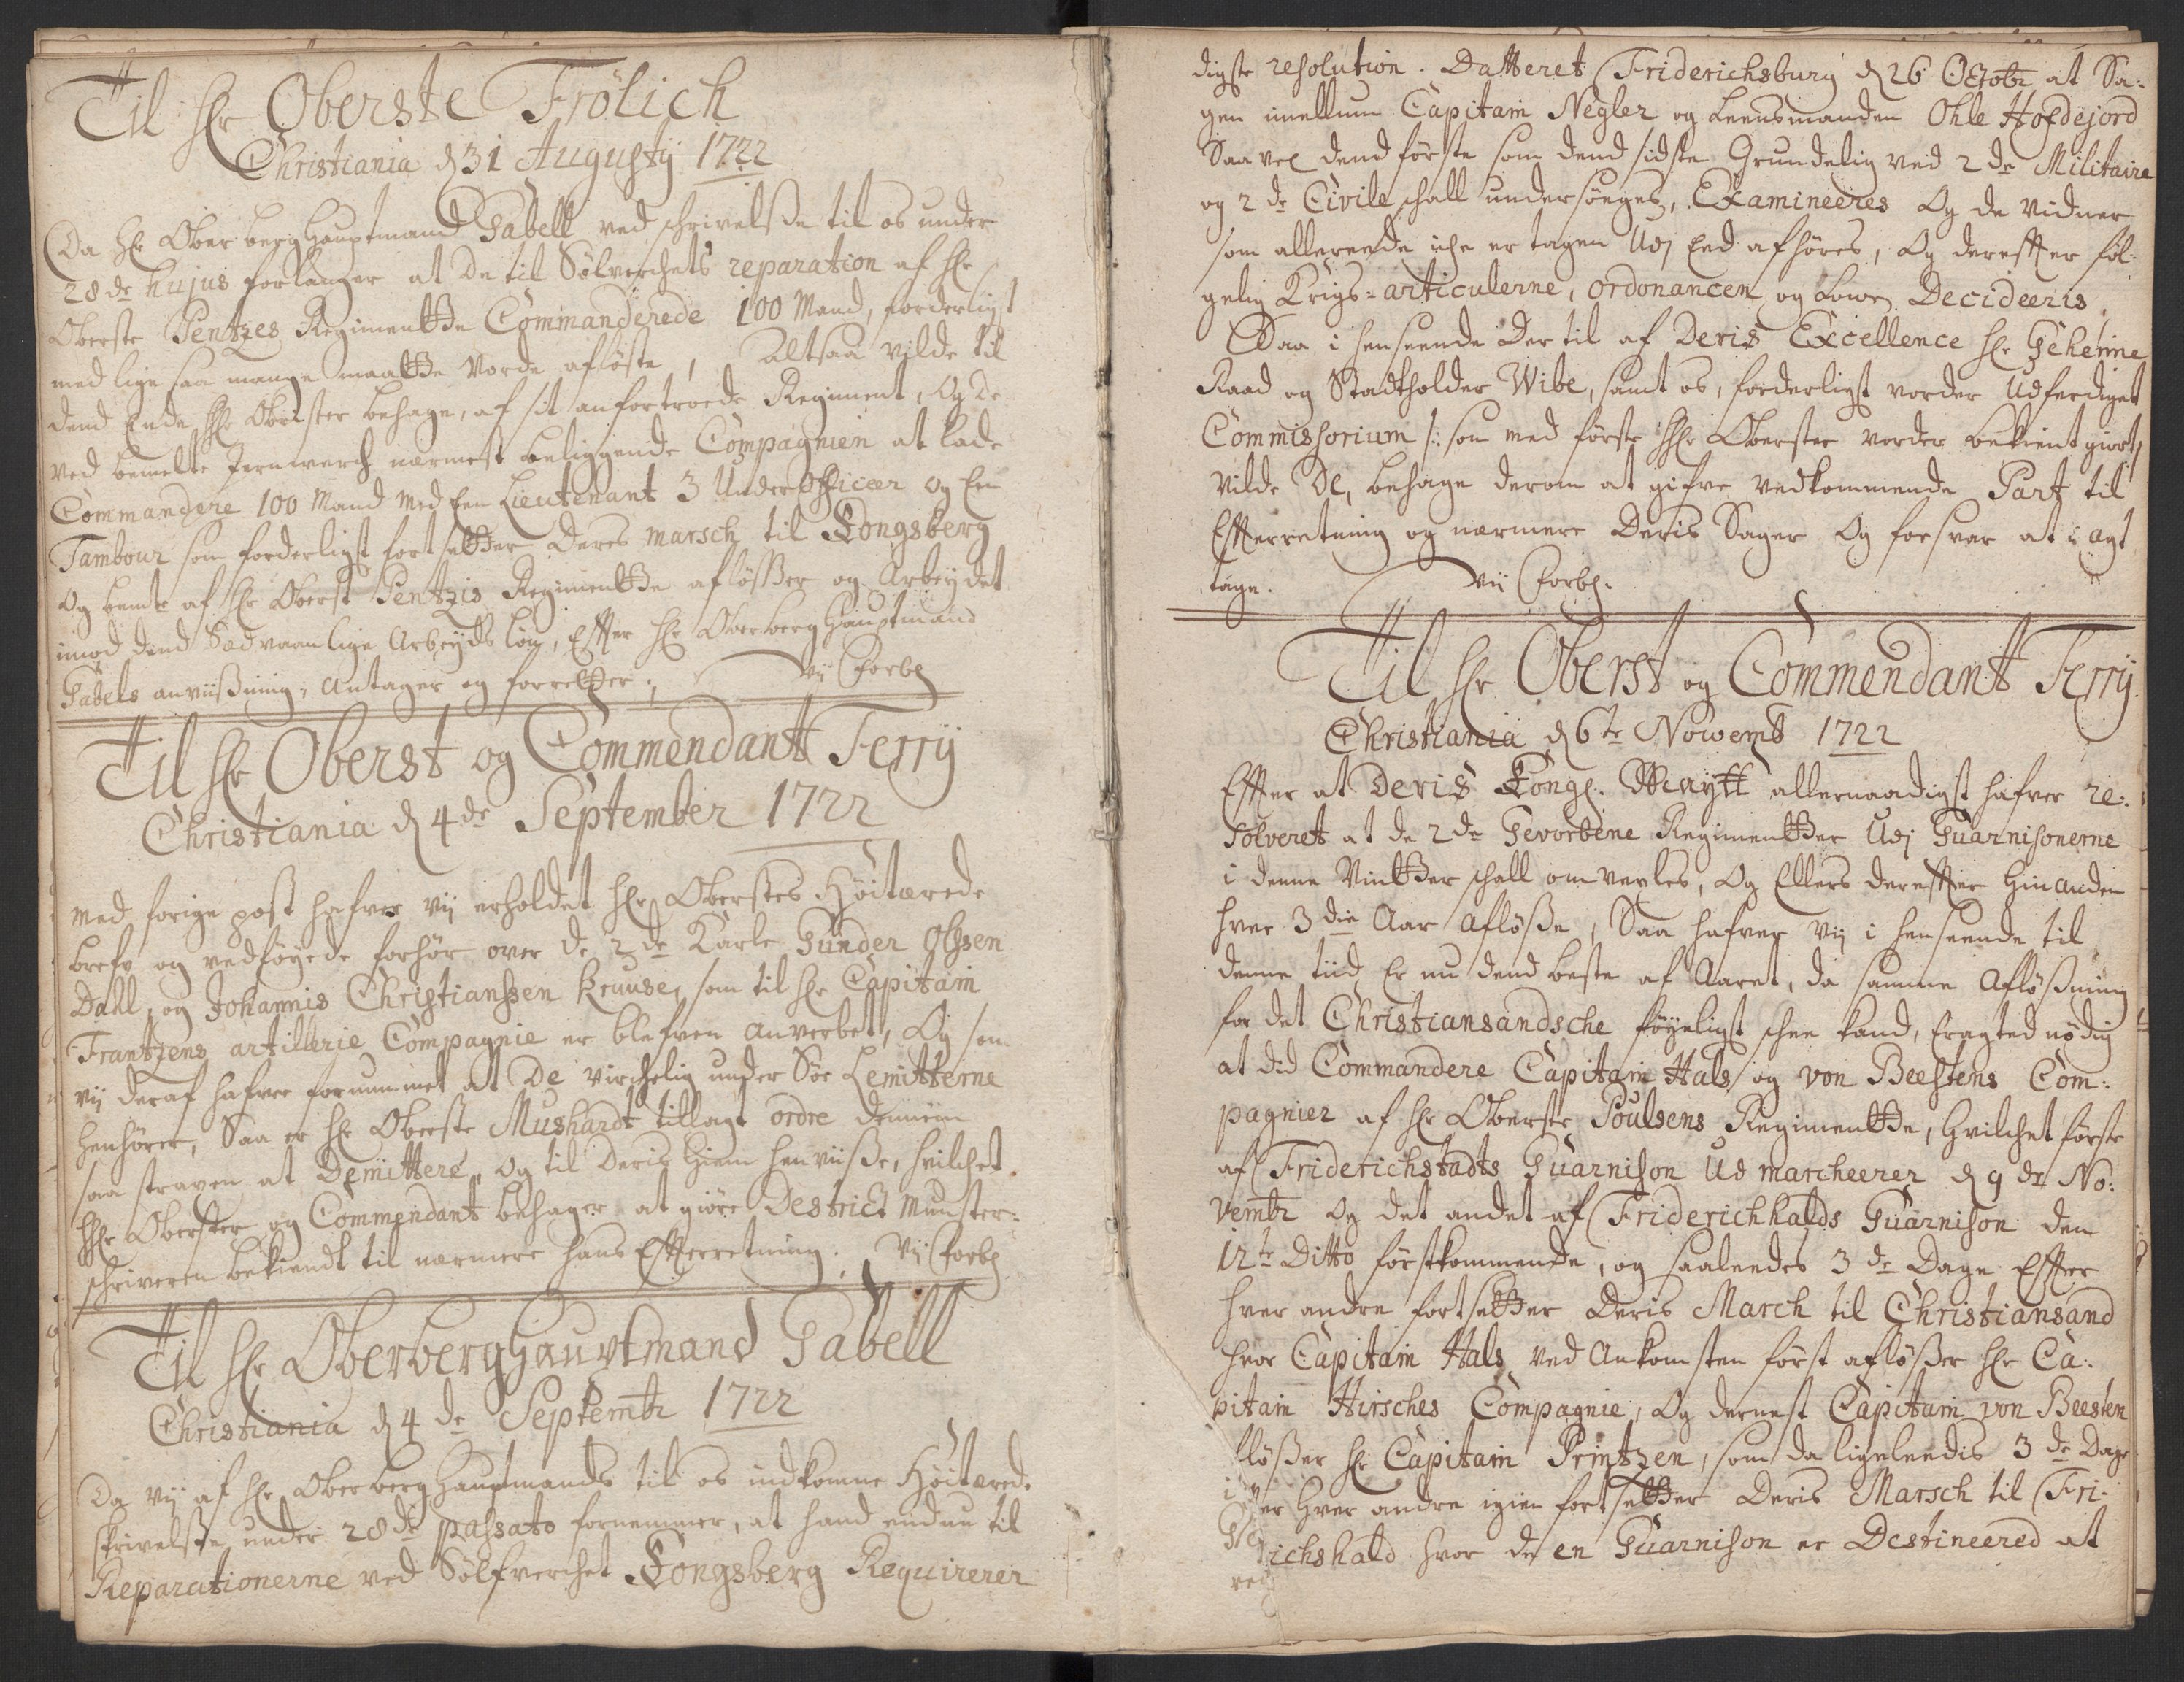 Til Hr Oberste Frölich
Christiania d 31 Augustij 1722
Da Hr Ober berg Hauptmand Gabell ved schrivelße til os under
28de hujus forlanger at De til Sölverchets reparation af Hr
Oberste Pentzes Regimentte Commanderede 100 Mand, forderligst
med lige saa mange maatte vorde aflöste, Altsaa vilde til
dend Ende Hr Oberster behage, af sit anfortroede Regiment, Og de
ved bemelte Jernwerch nærmest beliggende Compagnien at lade
Commandere 100 Mand med Een Lieutenant 3 UnderOfficeer og Een
Tambour som forderligst fortsetter Deres marsch til Kongsberg
Og bemte af Hr Oberst Pentzis Regimentte aflößer og Arbeydet
imod dend Sædvaanlige Arbeyds lön, Effter Hr Oberberg Hauptmand
Gabels anviißning, Antager og forretter; Vij Forbl
Til Hr Oberst og Commendant Ferrij
Christiania d 4de September 1722
Med forige post hafver vij erholdet Hr Oberstes Höitærede
brefv og vedföyede forhör over de 2de Karle Gunder Olßen
Dahl, og Johannis Christianßen Kruuse, som til Hr Capitain
Frantzens artillerie Compagnie er blefven anverbet, Og som
vij deraf hafver fornummet at De virchelig under Söe Lemitterne
henhörer, Saa er Hr Oberste Mushardt tillagt ordre dennem
saa straxen at Demittere, og til Deris Hiem henviiße, hvilchet
Hr Oberster og Commendant behager at giöre Destrict Munster-
schriveren bekiendt til nærmere hans Effterretning. Vij Forbl
Til Hr Oberberghauvtmand Gabell
Christiania d 4de Septembr 1722
Da vij af Hr Oberberg Hauptmands til os indkomne Höitæred.
skrivelße under 28de passato fornemmer, at hand endnu til
Reparationerne ved Sölfverchet Kongsberg Requirerer
digste resolution. Datteret Friderichsburg d 26 Octobr at Sa-
gen imellum Capitain Negler og Leensmanden Ohle Hofdejord
Saavel dend förste som dend sidste Grundelig ved 2de Militaire
og 2de Civile schall undersöeges, Examineeres Og de vidner
som allereede iche er tagen Udj Eed afhöres, Og dereffter föl-
gelig Krigs-articulerne, ordonancen og Lowen Decideeris,
Saa i henseende der til af Deris Excellence Hr Geheime
Raad og Stadtholder Wibe, samt os, forderligst vorder Udferdiget
Commissorium /: som med förste Hr Oberster vorder bekient giort/
vilde De, behage derom at gifve vedkommende Part til
Effterretning og nærmere Deris Sager Og forsvar at i agt
tage. Vij Forbl.
Til Hr Oberst og Commendant Ferrij
Christiania d 6te Nowemb 1722
Effter at Deris Kongl. Maytt allernaadigst hafver re-
solveret at de 2de Gevorbene Regimentter Udj Guarnisonerne
i denne Vintter schall omvexles, Og Ellers dereffter Hinanden
hver 3die Aar aflöße, Saa hafver vij i henseende til
denne tiid Er nu dend beste af Aaret, da samme Aflößning
for det Christiansandsche föyeligst schee kand, Eragted nödig
at did Commandere Capitain Hals og von Beestens Com-
pagnier af Hr Oberste Poulsens Regimentte, hvilchet förste
af Friderichstadts Guarnison Ud marcheerer d 9de No-
vembr og det andet af Friderichhalds Guarnison den
12te Ditto förstkommende, og saaleedes 3de Dage Effter
hver andre fortsetter Deris March til Christiansand
hvor Capitain Hals ved Ankomsten först aflößer Hr Ca-
pitain Hirsches Compagnie, Og dernest Capitain von Beesten
lößer Hr Capitain Printzen, som da ligeleedis 3de Dage
er hver andre igien fortsetter Deris Marsch til Fri-
ichshald hvor de en Guarnison er Destineered at